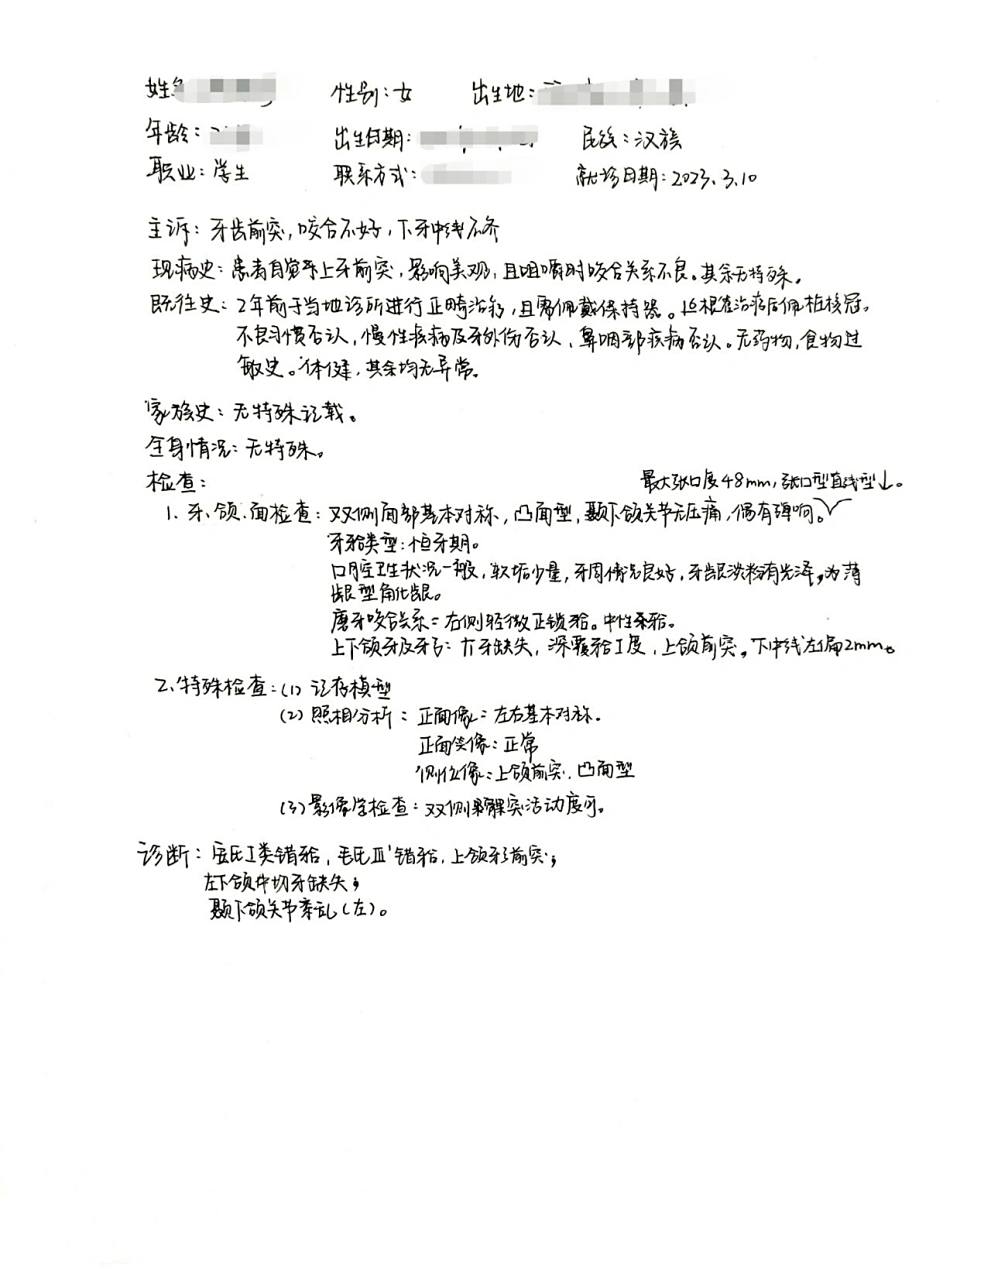 姓名 性别:女 出生地:
年龄: 出生日期: 民族:汉族
职业:学生 联系方式: 就诊日期:2023.3.10
主诉:牙齿前突,咬合不好,下牙中线不齐
现病史:患者自觉上牙前突,影响美观,且咀嚼时咬合关系不良。其余无特殊。
既往史:2年前于当地诊所进行正畸治疗,且需佩戴保持器。 根管治疗后佩桩核冠。
不良习惯否认,慢性疾病及牙外伤否认,鼻咽部疾病否认。无药物,食物过
敏史。体健,其余均无异常。
家族史:无特殊记载。
全身情况:无特殊。
检查:
最大张口度48mm,张口型直线型↓。
1.牙、颌、面检查:双侧面部基本对称,凸面型,颞下颌关节无压痛,偶有弹响。
牙𬌗类型:恒牙期。
口腔卫生状况一般,软垢少量,牙周情况良好,牙龈淡粉有光泽,为薄
龈型角化龈。
磨牙咬合关系:右侧轻微正锁𬌗。中性𬌗。
上下颌牙及牙弓: 牙缺失,深覆𬌗I度,上颌前突。下中线左偏2mm。
2.特殊检查:(1)记存模型
(2)照相分析:正面像:左右基本对称。
正面笑像:正常
侧位像:上颌前突,凸面型
(3)影像学检查:双侧髁突活动度可。
诊断:安氏I类错𬌗,毛氏 错𬌗,上颌牙前突;
左下颌中切牙缺失;
颞下颌关节紊乱(左)。